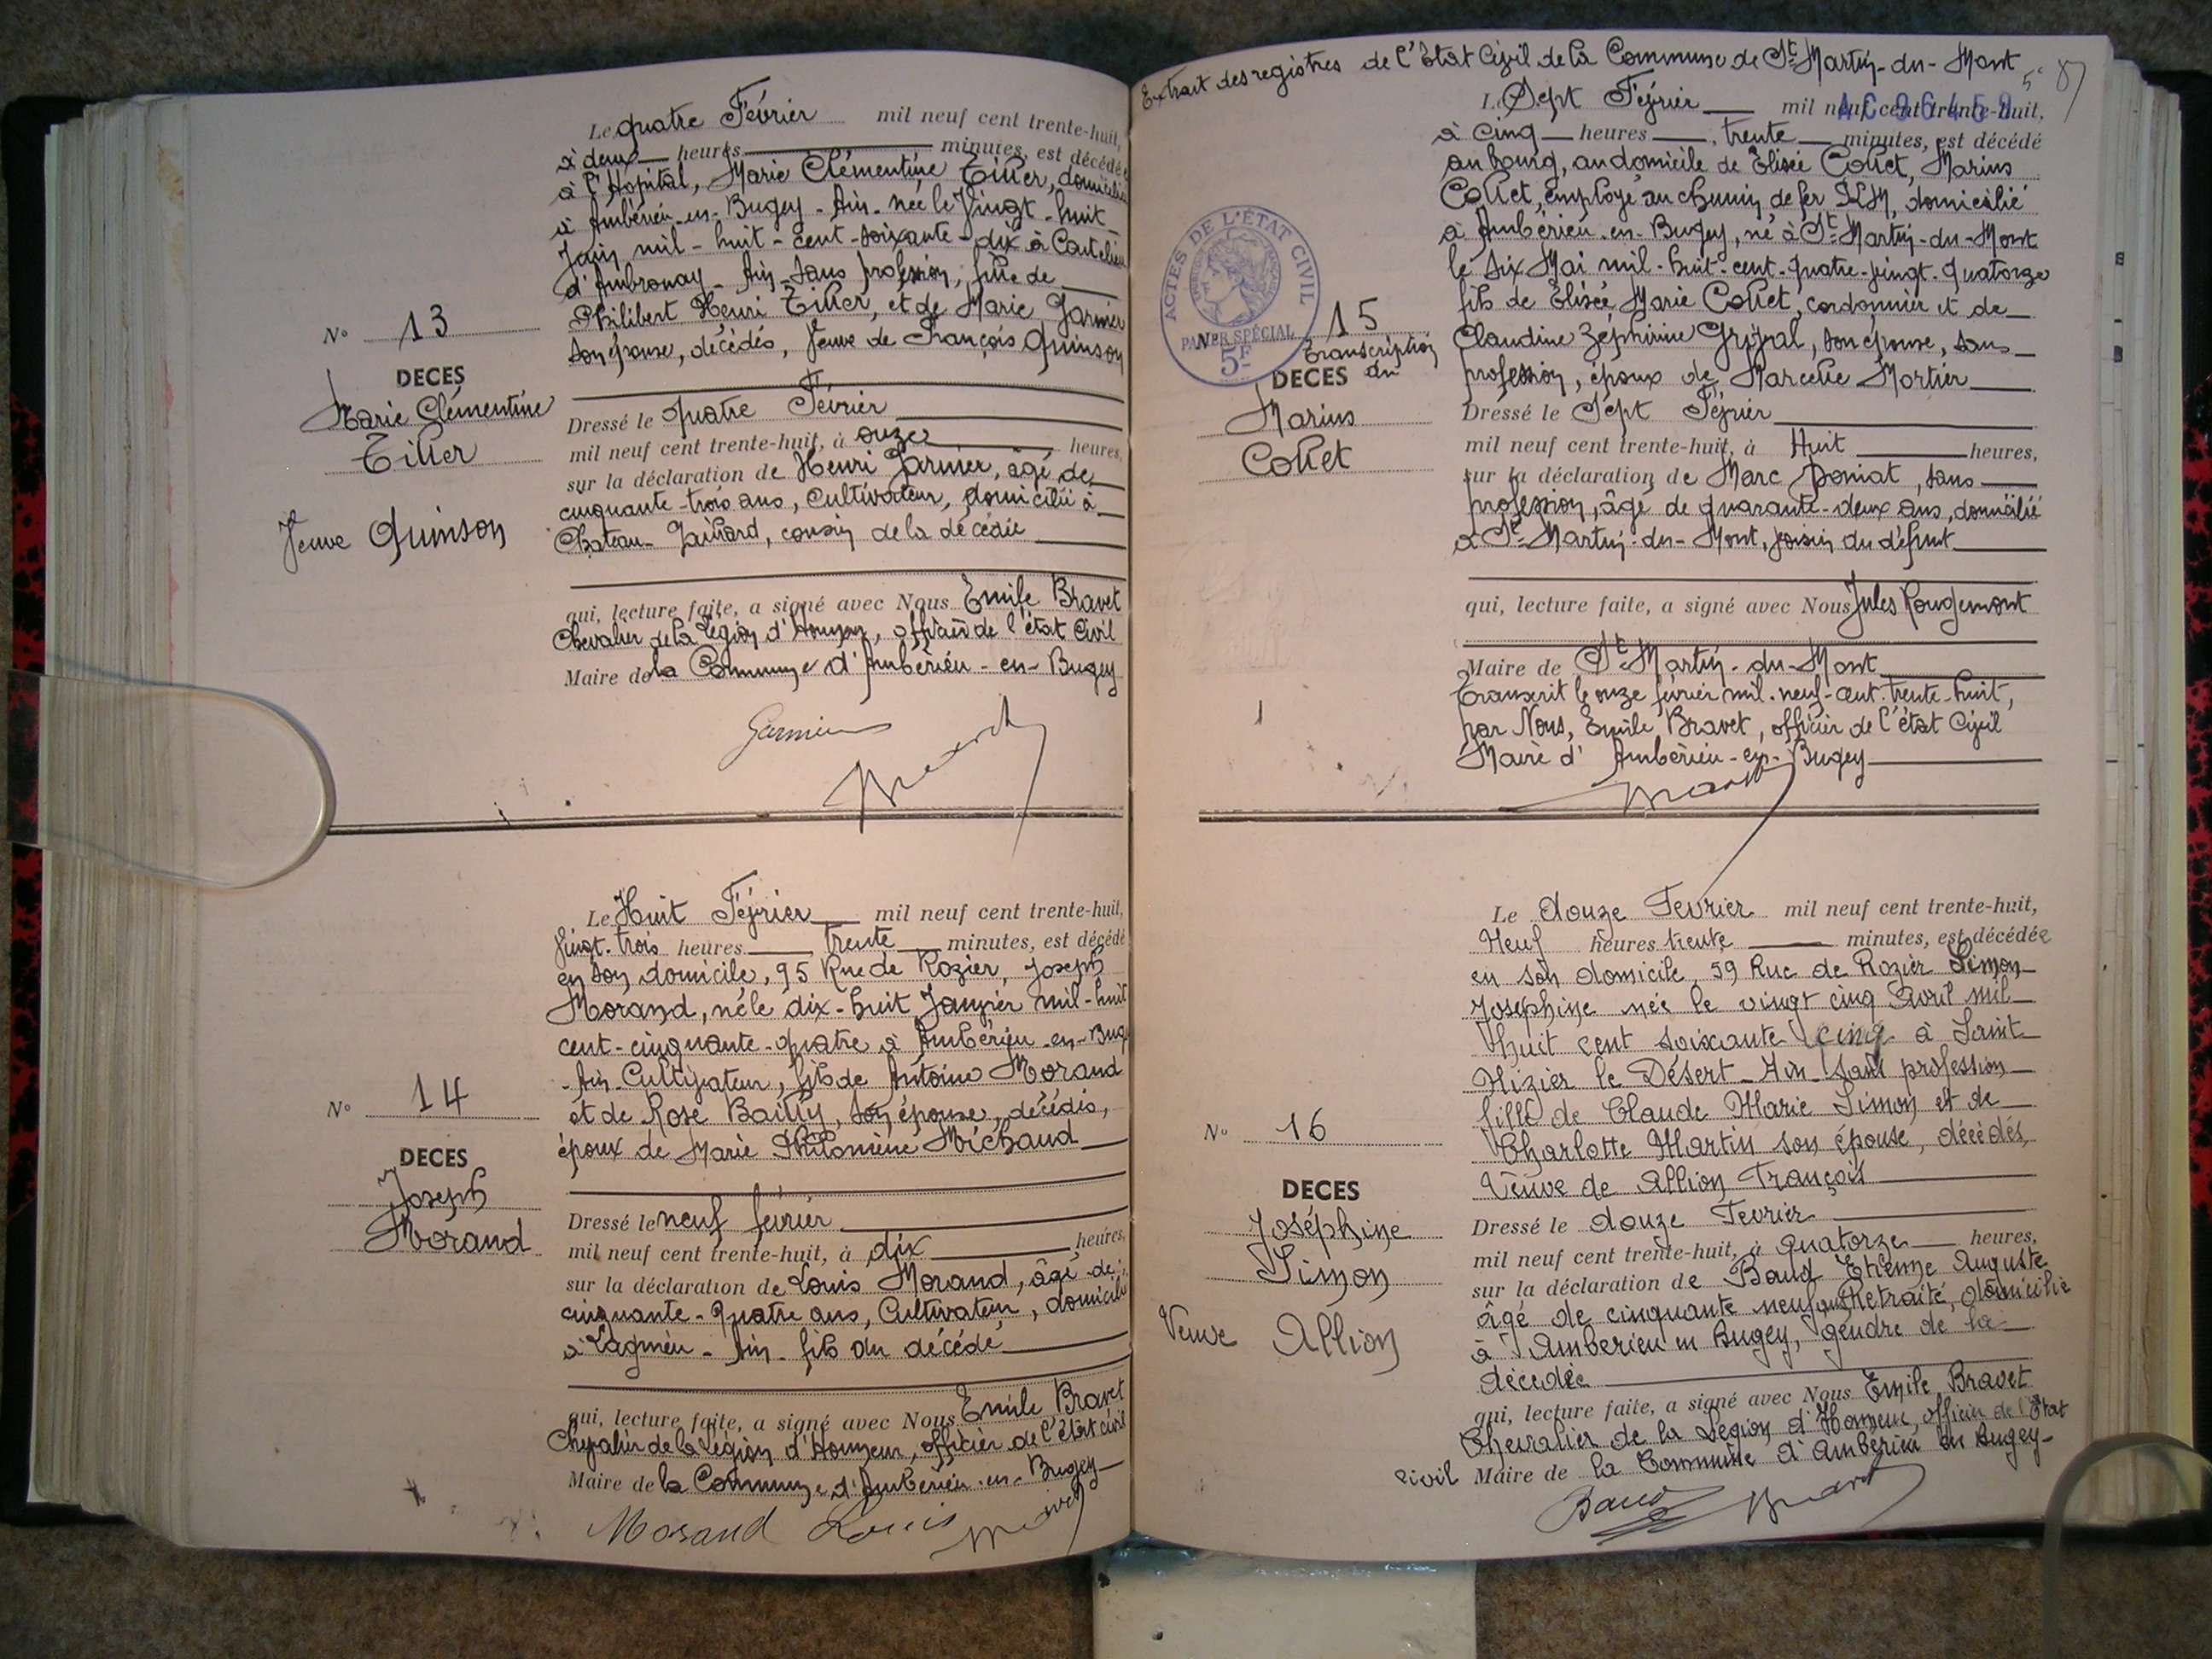 Le quatre Février mil neuf cent trente-huit,
à deux heures minutes, est décédée
à l'Hopital, Marie Clémentine Tiller, domiciliée
à Ambérieu-en-Bugey - Ain - née le Vingt-huit
Juin mil-huit-cent-soixante-dix à
d'Ambronay - Ain - sans profession, fille de
Philibert Henri Tiller, et de Marie Garnier
son épouse, décédés, Veuve de François Quinson
N° 13
DECES
Marie Clémentine
Tiller
Veuve Quinson
Dressé le quatre Février
mil neuf cent trente-huit, à onze heures,
sur la déclaration de Henri Garnier, âgé de
cinquante-trois ans, Cultivateur, domicilié à
Chateau-Gaillard, cousin de la décédée
qui, lecture faite, a signé avec Nous Emile Bravet
Chevalier de la Légion d'Honneur, officier de l'état Civil
Maire de la Commune d'Ambérieu-en-Bugey
Garnier
Le Huit Février mil neuf cent trente-huit,
Vingt-trois heures trente minutes, est décédé
en son domicile, 95 Rue de Rozier, Joseph
Morand, né le dix-huit Janvier mil-huit
cent-cinquante-quatre à Ambérieu-en-Bug
-Ain-Cultivateur, fils de Antoine Morand
et de Rose Bailly, son épouse, décédés,
époux de Marie Philomène Michaud
N° 14
DECES
Joseph
Morand
Dressé le neuf février
mil neuf cent trente-huit, à dix heures,
sur la déclaration de Louis Morand, âgé de
cinquante-quatre ans, Cultivateur, domicilié
à Lagnieu - Ain - fils du décédé
qui, lecture faite, a signé avec Nous Emile Bravet
Chevalier de la Légion d'Honneur, officier de l'état civil
Maire de la Commune d'Ambérieu-en-Bugey
Morand Louis
Extrait des registres de l'Etat Civil de la Commune de St-Martin-du-Mont
Le Sept Février mil neuf cent trente-huit,
à cinq heures, trente minutes, est décédé
au bourg, au domicile de Elisée Collet, Marius
Collet, employé au chemin de fer PLM, domicilié
à Ambérieu-en-Bugey, né à St-Martin-du-Mont
le six Mai mil-huit-cent-quatre-vingt-quatorze
fils de Elisée Marie Collet, cordonnier et de
Claudine Zéphirine Gripal, son épouse, sans
profession, époux de Marcelle Mortier
ACTES DE L'ÉTAT CIVIL
PAPIER SPÉCIAL
5F
N° 15
Transcription
DECES du
Marius
Collet
Dressé le Sept Février
mil neuf cent trente-huit, à Huit heures,
sur la déclaration de Marc Poniat, sans
profession, âgé de quarante-deux ans, domicilié
à St-Martin-du-Mont, voisin du défunt
qui, lecture faite, a signé avec Nous Jules Rougemont
Maire de St-Martin-du-Mont
Transcrit le onze février mil-neuf-cent-trente-huit,
par Nous, Emile Bravet, officier de l'état Civil
Maire d'Ambérieu-en-Bugey
Le douze Fevrier mil neuf cent trente-huit,
Neuf heures trente minutes, est décédée
en son domicile, 59 Rue de Rozier Simon
Joséphine née le vingt cinq Avril mil
huit cent soixante cinq à Saint
Nizier le Désert - Ain - sans profession
fille de Claude Marie Simon et de
Charlotte Martin son épouse, décédés,
Veuve de Allion François
N° 16
DECES
Joséphine
Simon
Veuve Allion
Dressé le douze Fevrier
mil neuf cent trente-huit, à quatorze heures,
sur la déclaration de Baud Etienne Auguste
âgé de cinquante neuf ans Retraité, domicilié
à Amberieu en Bugey, gendre de la
décédée
qui, lecture faite, a signé avec Nous Emile Bravet
Chevalier de la Légion d'Honneur, officier de l'Etat
civil Maire de la Commune d'Ambérieu en Bugey
Baud